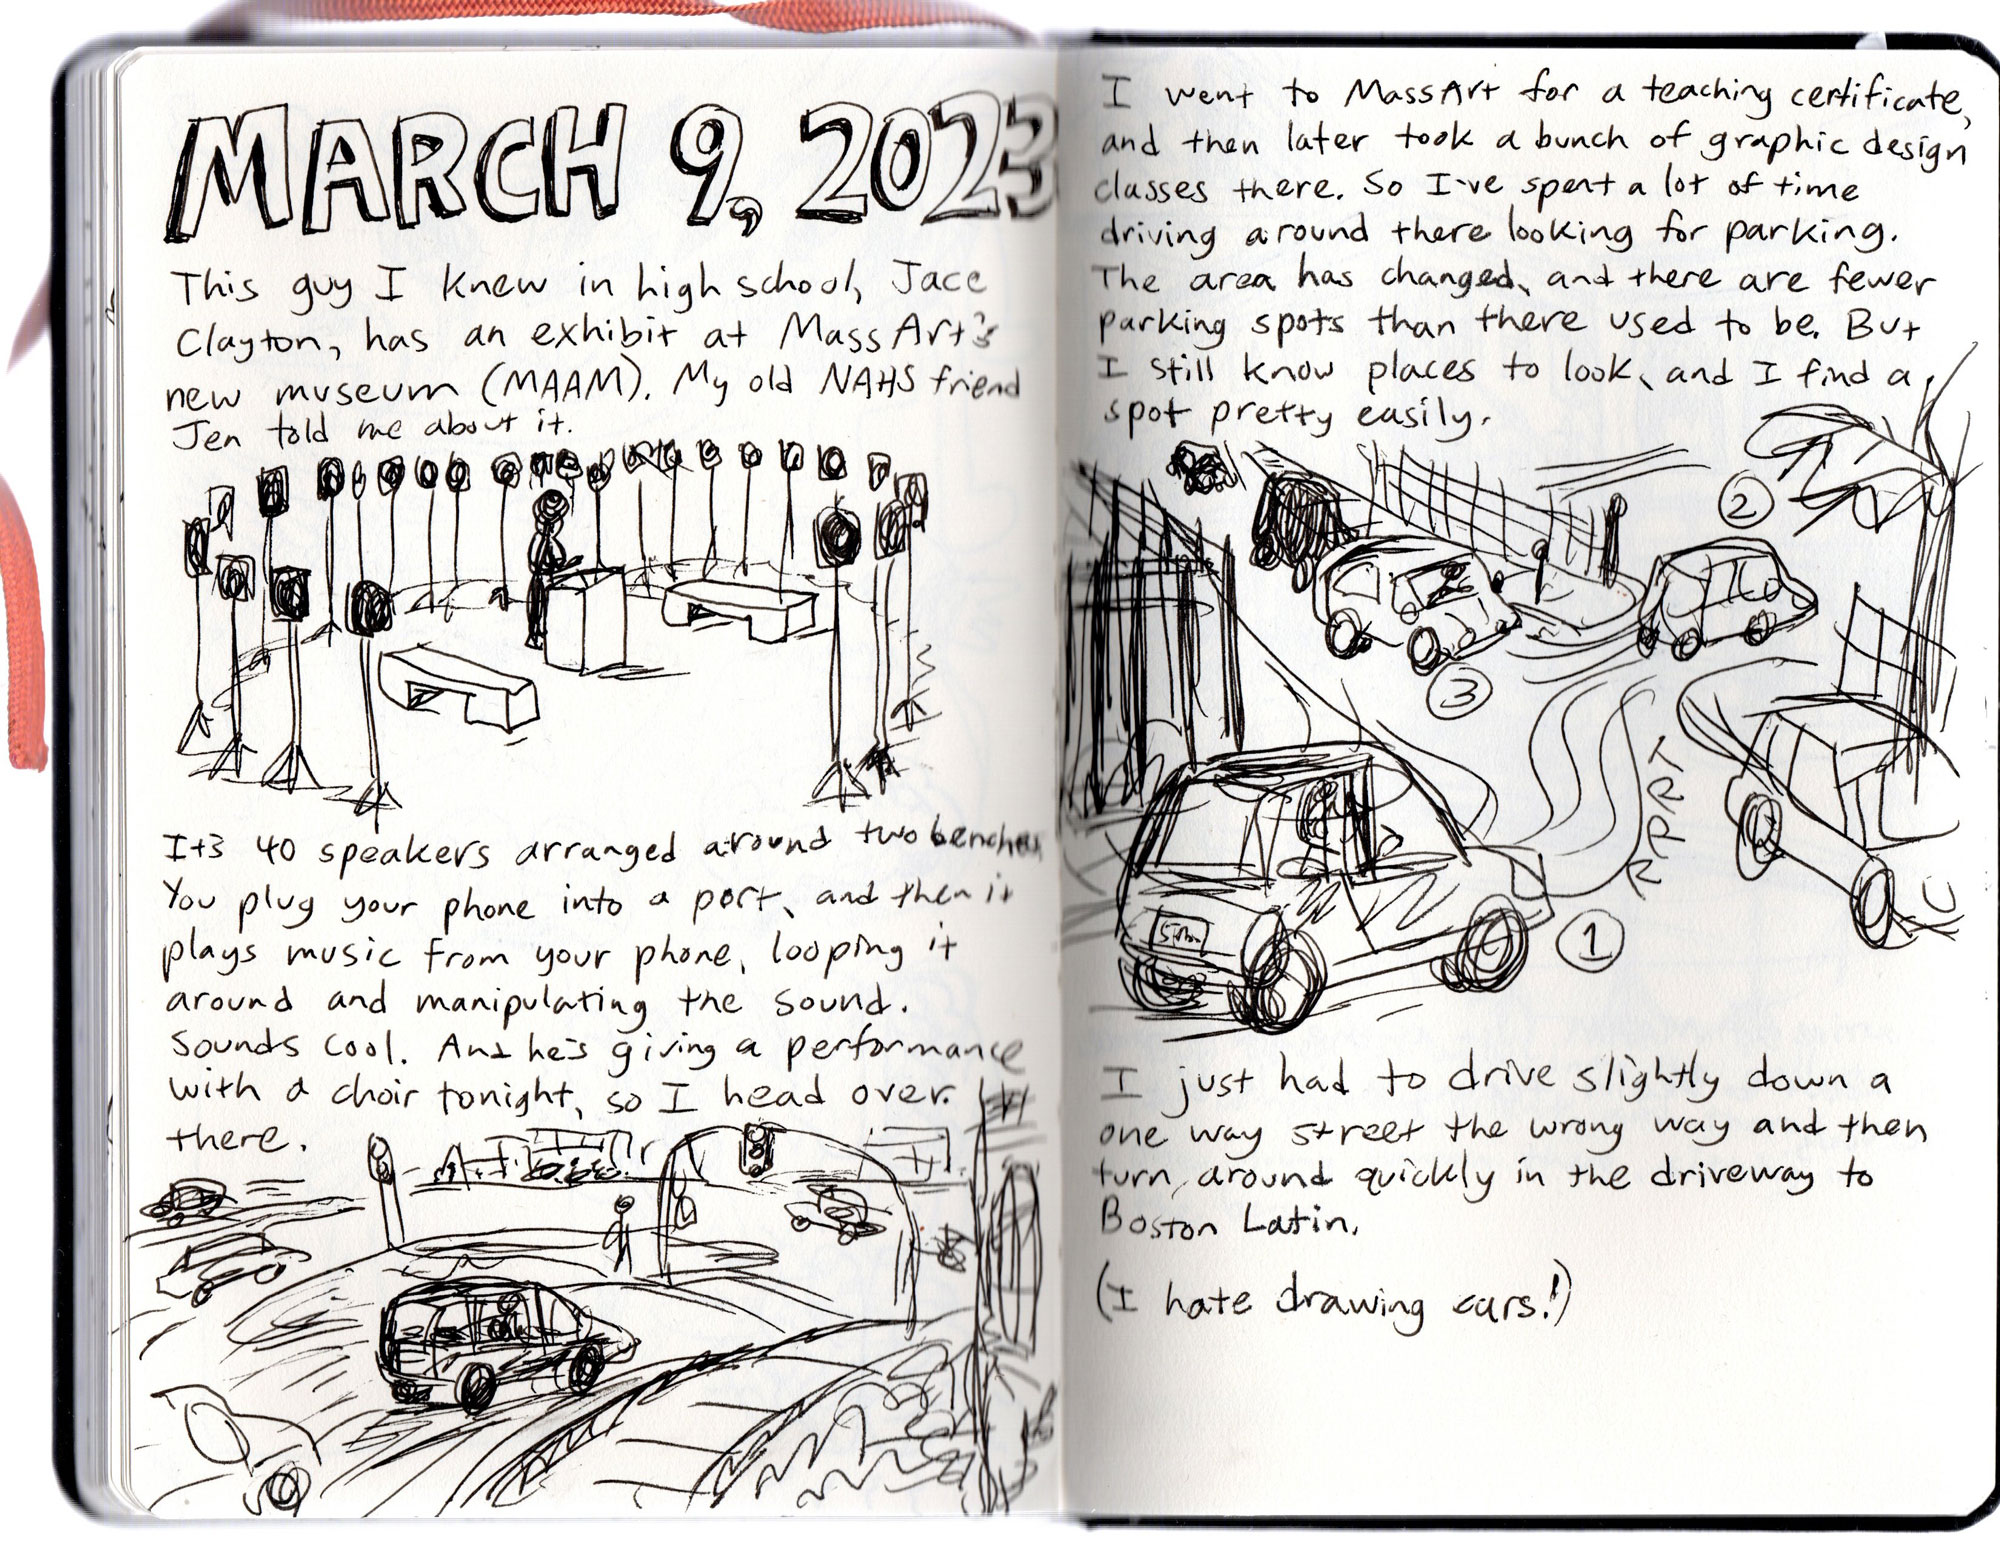 MARCH 9, 2023
This guy I knew in high school, Jace
Clayton, has an exhibit at MassArt's
new museum (MAAM). My old NAHS friend
Jen told me about it.
It's 40 speakers arranged around two benches.
You plug your phone into a port, and then it
plays music from your phone, looping it
around and manipulating the sound.
Sounds cool. And he's giving a performance
with a choir tonight, so I head over
there.
I went to MassArt for a teaching certificate,
and then later took a bunch of graphic design
classes there. So I've spent a lot of time
driving around there looking for parking.
The area has changed, and there are fewer
parking spots than there used to be. But
I still know places to look, and I find a
spot pretty easily.
2
3
RPRT
1
I just had to drive slightly down a
one way street the wrong way and then
turn around quickly in the driveway to
Boston Latin.
(I hate drawing cars!)